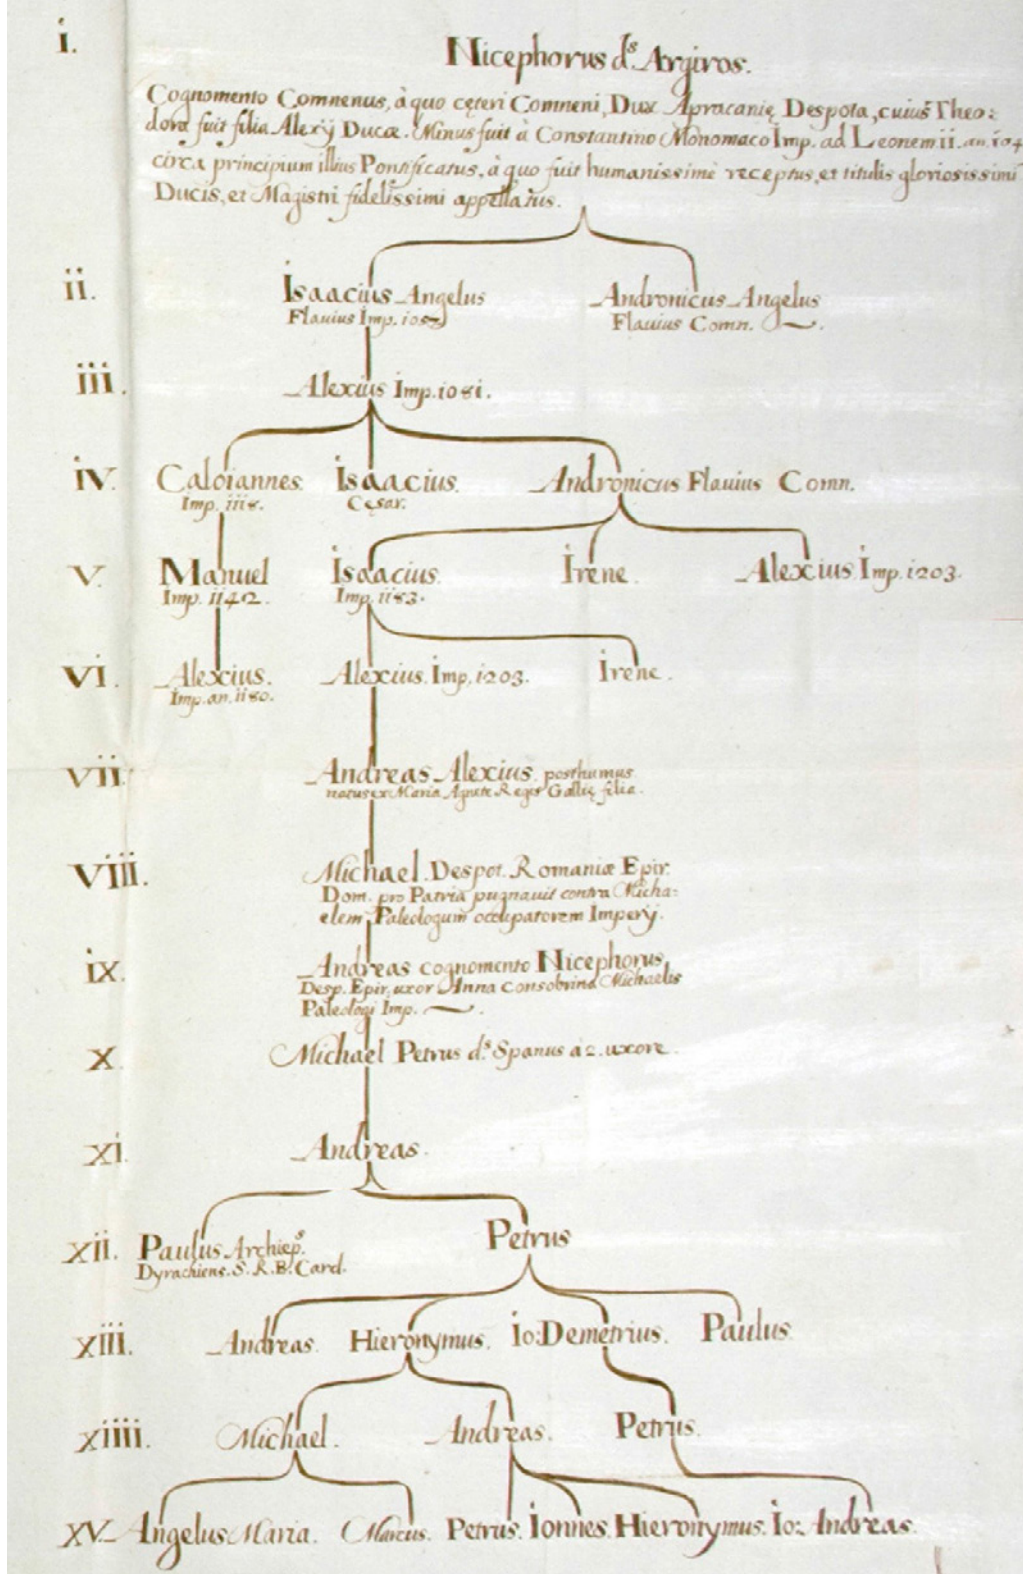 i.
Nicephorus d.s Argiros.
Cognomento Comnenus, à quo cęteri Comneni, Dux Apracanię Despota, cuius Theo:
dora fuit filia Alexÿ Ducæ. Minus fuit à Constantino Monomaco Imp. ad Leonem ii. an. 104
circa principium illius Pontificatus, à quo fuit humanissimè receptus, et titulis gloriosissimi
Ducis, et Magistri fidelissimi appellatus.
ii. Isaacius Angelus Andronicus Angelus
Flavius Imp. 1057 Flauius Comn.
iii. Alexius Imp. 1081.
iv. Caloiannes Isaacius. Andronicus Flauius Comn.
Imp. 1118. Cęsar.
V. Manuel Isaacius. Irene. Alexius Imp. 1203.
Imp. 1142. Imp. 1183.
VI. Alexius. Alexius. Imp. 1203. Irene.
Imp. an. 1180.
vii. Andreas Alexius posthumus
natus ex Maria Agnete Regis Gallię filia.
Viii. Michael Despot. Romaniæ Epir.
Dom. pro Patria pugnauit contra Micha:
elem Paleologum occupatorem Imperÿ.
ix. Andreas cognomento Nicephorus
Desp. Epir. uxor Anna consobrina Michaelis
Paleologi Imp.
X. Michael Petrus d.s Spanus à 2. uxore.
xi. Andreas.
xii. Paulus Archiep.s Petrus
Dyrachiens. S. R. B. Card.
xiii. Andreas. Hieronymus. Io: Demetrius. Paulus.
xiiii. Michael. Andreas. Petrus.
XV. Angelus Maria. Marcus. Petrus. Ionnes. Hieronymus. Io: Andreas.